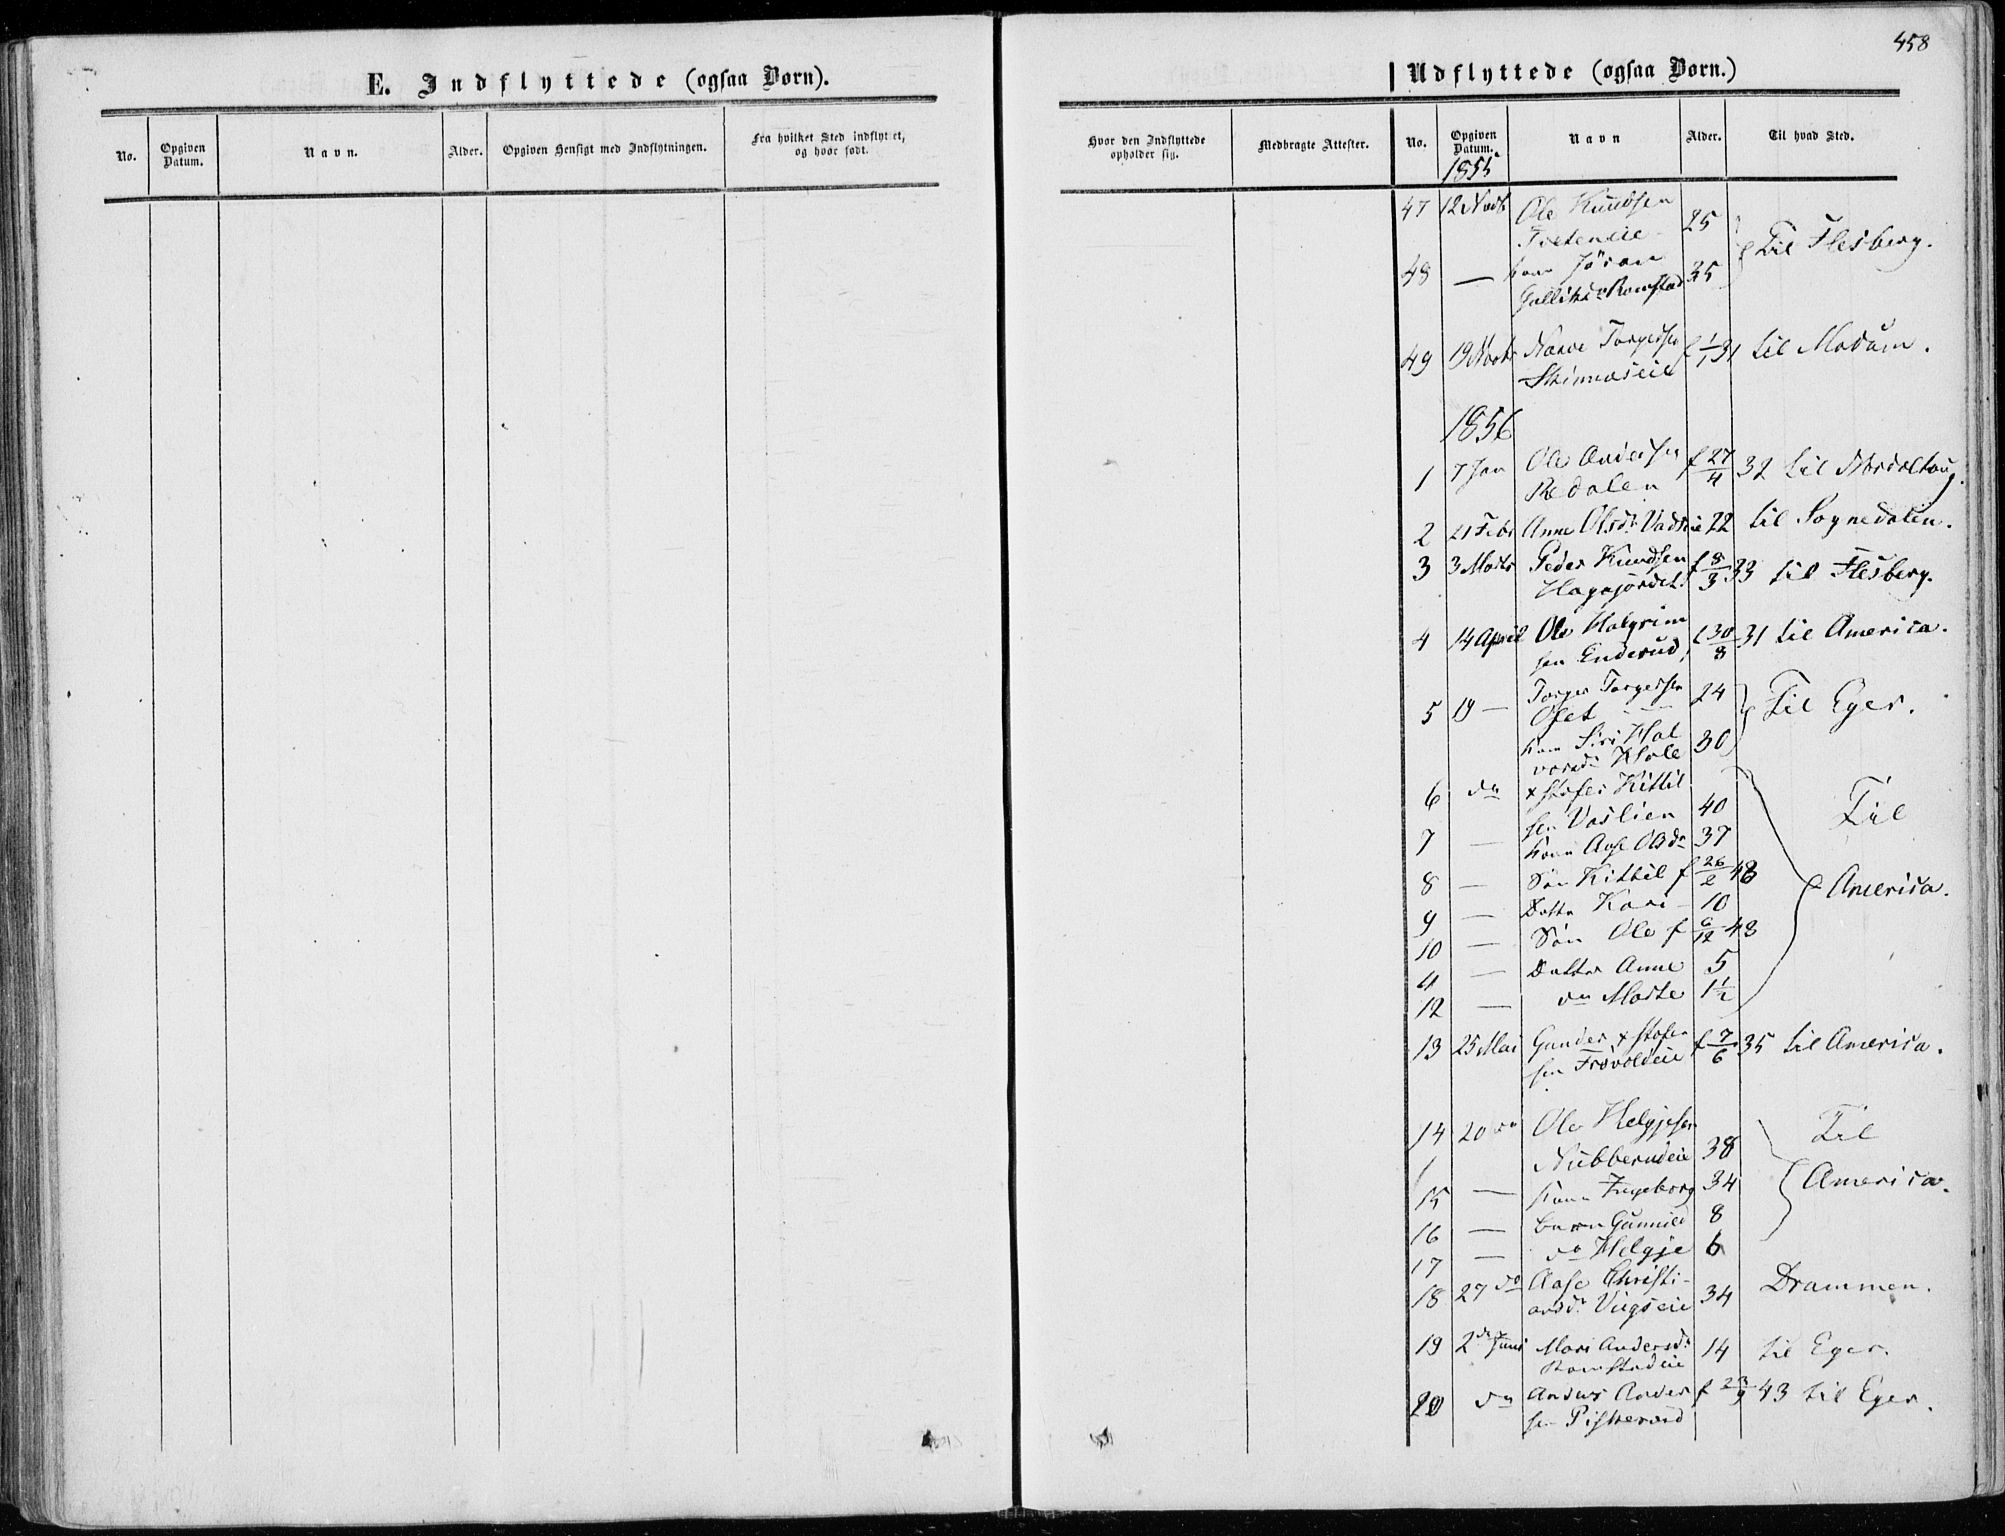 458
E. Indflyttede (ogsaa Børn).
Udflyttede (ogsaa Børn.)
No. Opgiven Datum. Navn. Alder. Opgiven Hensigt med Indflytningen. Fra hvilket Sted indflyttet, og hvor født.
Hvor den Indflyttede opholder sig. Medbragte Attester. No. Opgiven Datum. Navn Alder. Til hvad Sted.
1855
47 12 Novbr Ole Knudsen 25
48 — Kone Jöran 35 Til Flesberg.
49 19 Novbr Torgersen f 1/1 31 til Modum.
1856
1 7 Jan Ole Andersen f 27/4 32 til
Redalen
2 21 Febr Anne Olsdr 22 til Sognedalen.
3 3 Marts Peder Knudsen f 8/3 33 til Flesberg.
4 14 April Ole Halgrim f 30/8 31 til America.
sen Enderud,
5 19 — Torger Torgersen 24 Til Eger.
Kone Siri Hal 30
vorsdr
6 do Kittil
sen Vaslien 40 Til
7 — Kone Aase Olsdr 37
8 — Søn Kittil f 26/2 48 America.
9 — Datter Kari 10
10 — Søn Ole f 6/12 48
11 — Datter Anne 5
12 — do Marte 1 1/2
13 25 Mai Gunder f 7/6 35 til America.
14 20 do Ole Helgjesen Til
Nubberudeie 38
15 — Kone Ingeborg 34 America.
16 — Barn Gunnild 8
17 — do Helgje 6
18 27 do Aase Christi- Drammen.
ansdr 34
19 2 den Juni Mari Andersdr 14 til Eger.
Ramstadeie
20 do Anders Ander f 23/9 43 til Eger.
sen